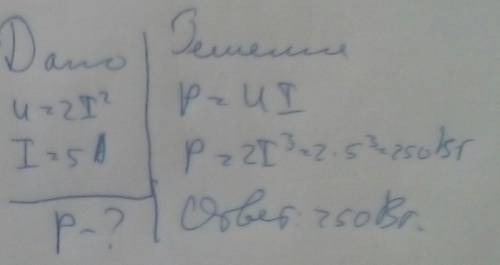 Дано
U=2I²
I=5A
P-?
Решение
P=UI
P=2I³=2·5³=250Вт
Ответ: 250Вт.